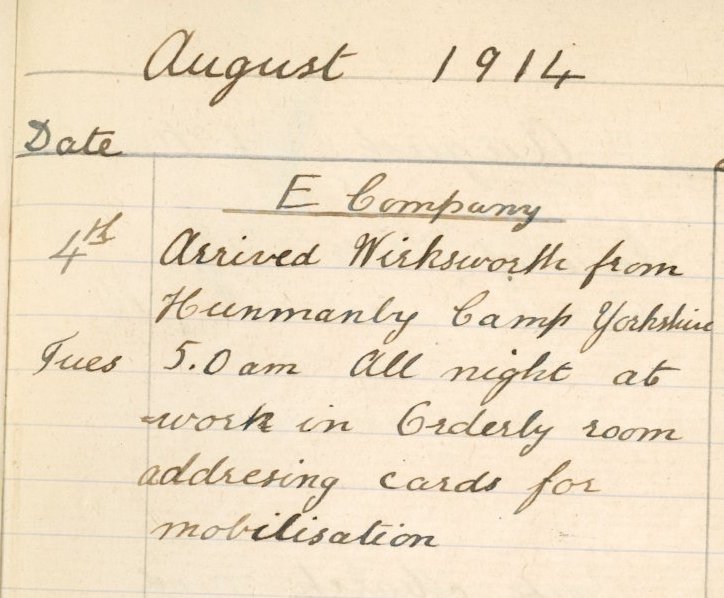 August 1914
Date
E Company
4th Arrived Wirksworth from
Hunmanby Camp Yorkshire
Tues 5.0 am All night at
work in Orderly room
addresing cards for
mobilisation